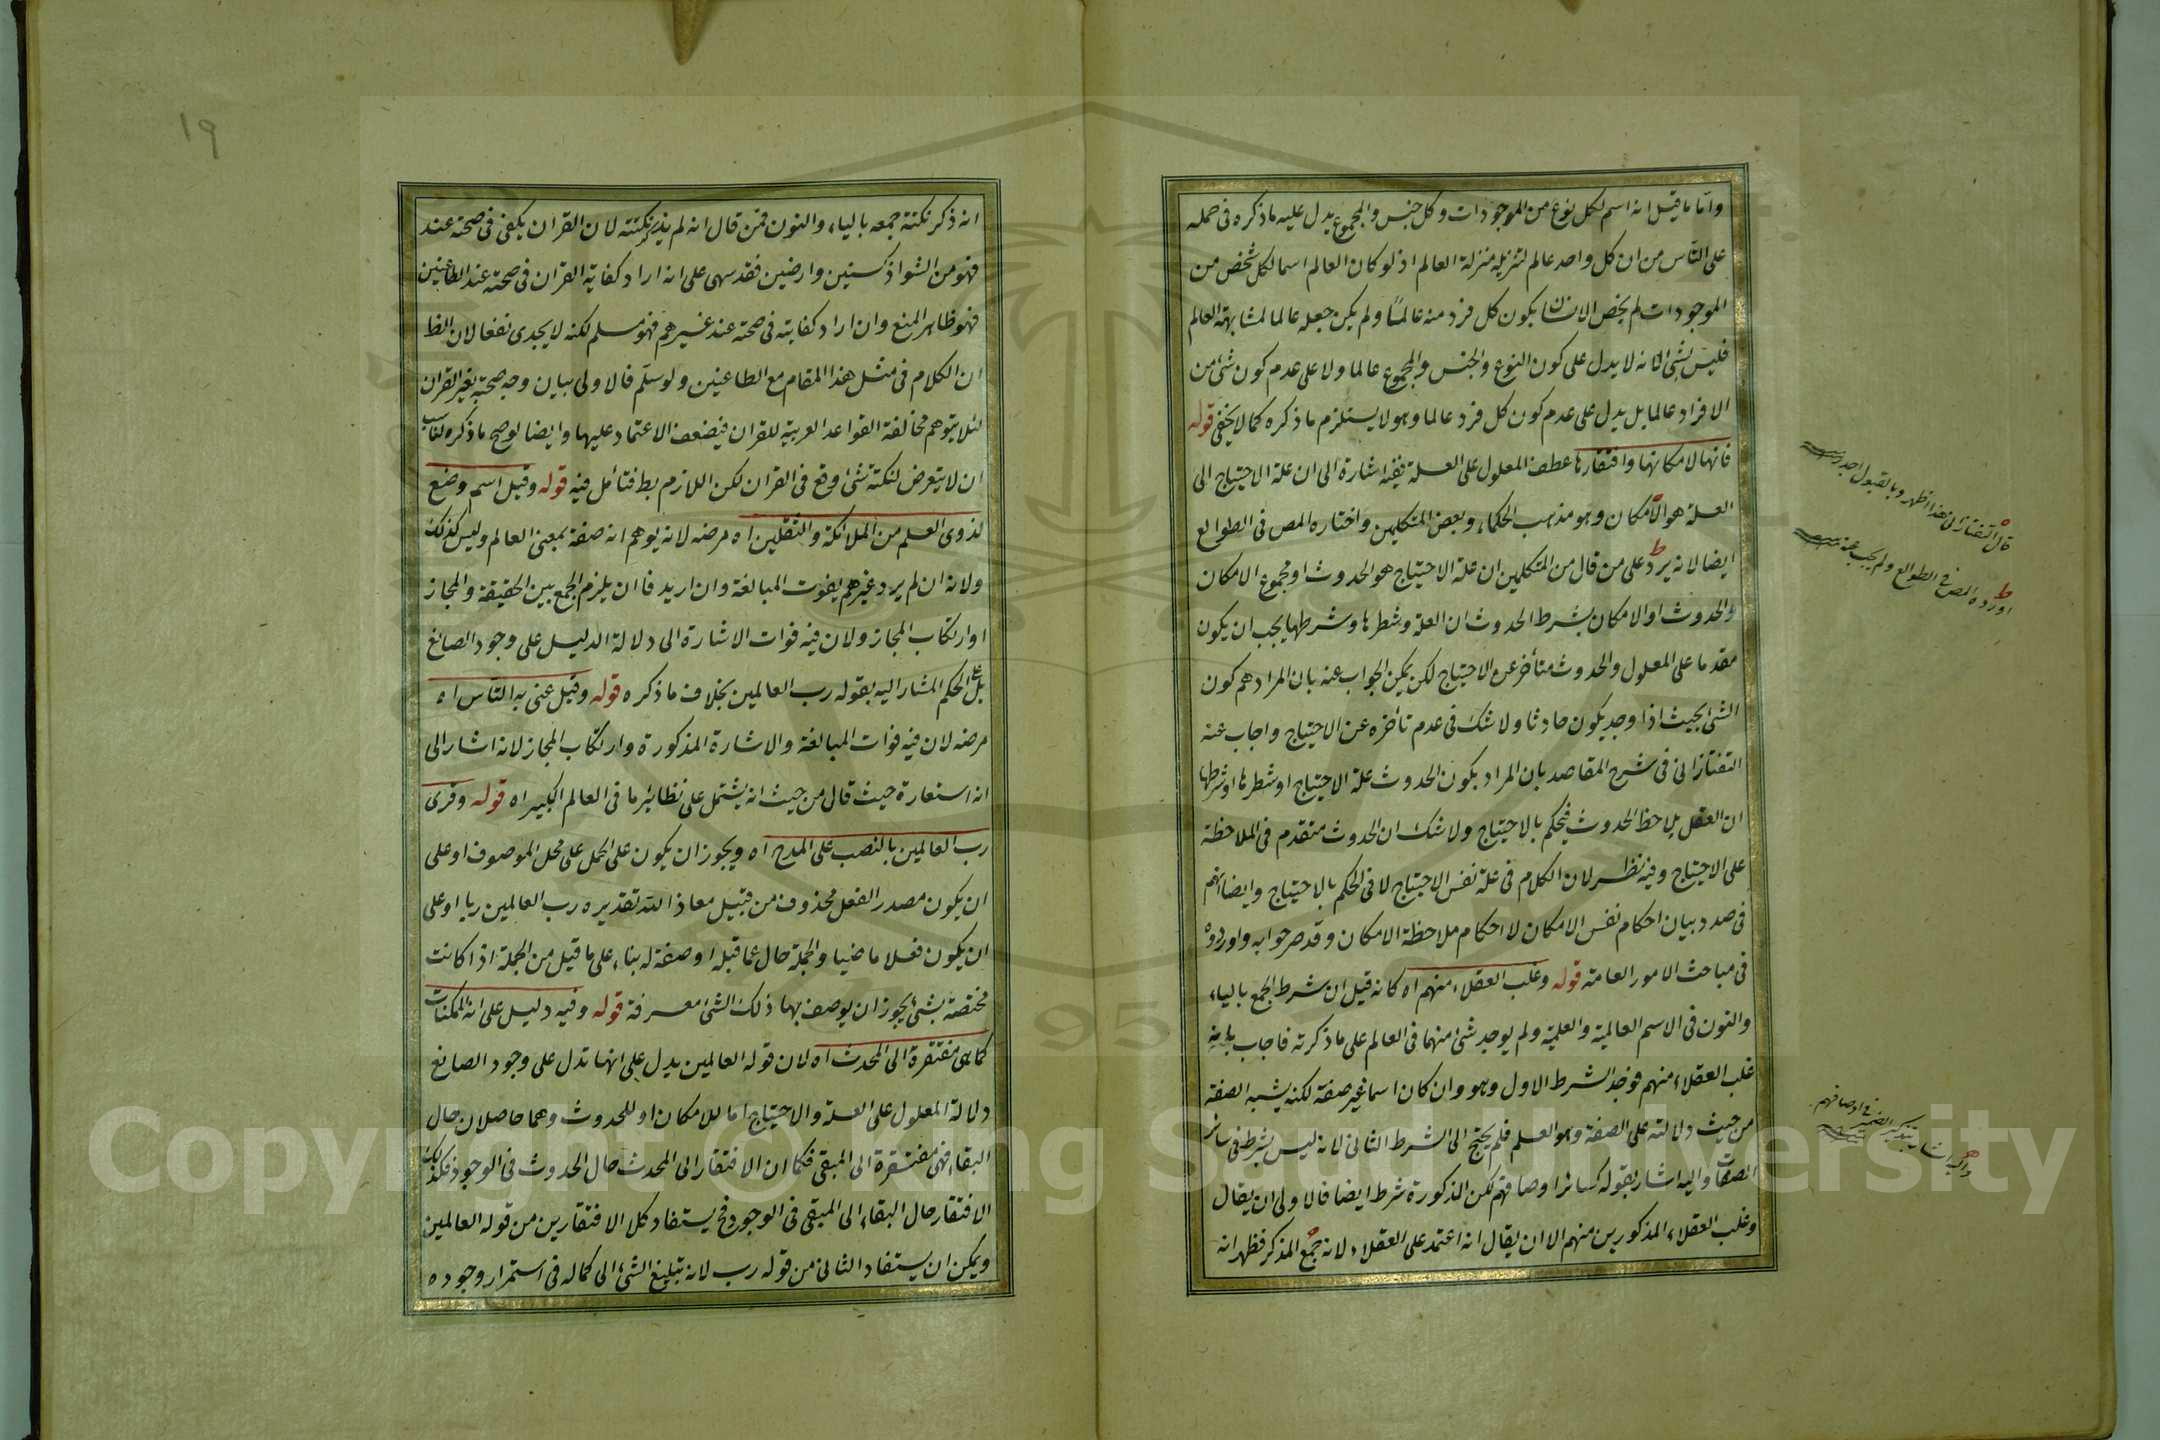 واما ما قيل انه اسم لكل نوع من الموجودات وكل جنس والمجموع يدل عليه ما ذكره فى حمله
على الناس من ان كل واحد عالم لتنزيله منزلة العالم اذ لو كان العالم اسما لكل شخص من
الموجودات لم يخص الانسان بكون كل فرد منه عالما ولم يكن جعله عالما لمشابهته العالم
فليس بشئ لانه لا يدل على كون النوع والجنس والمجموع عالما ولا على عدم كون شئ من
الافراد عالما بل يدل على عدم كون كل فرد عالما وهو لا يستلزم ما ذكره كما لا يخفى قوله
فانها لامكانها وافتقارها عطف المعلول على العلة ففيه اشارة الى ان علة الاحتياج الى
العلة هو الامكان وهو مذهب الحكماء وبعض المتكلمين واختاره المص فى الطوالع
ايضا لانه يرد على من قال من المتكلمين ان علة الاحتياج هو الحدوث او مجموع الامكان
والحدوث او الامكان بشرط الحدوث ان العلة وشطرها وشرطها يجب ان يكون
مقدما على المعلول والحدوث متأخر عن الاحتياج لكن يمكن الجواب عنه بان المرادهم كون
الشئ بحيث اذا وجد يكون حادثا ولا شك فى عدم تأخره عن الاحتياج واجاب عنه
التفتازانى فى شرح المقاصد بان المراد بكون الحدوث علة الاحتياج او شطرها او شرطها
ان العقل يلاحظ الحدوث فيحكم بالاحتياج ولا شك ان الحدوث متقدم فى الملاحظة
على الاحتياج وفيه نظر لان الكلام فى علة نفس الاحتياج لا فى الحكم بالاحتياج وايضا انهم
فى صدد بيان احكام نفس الامكان لا احكام ملاحظة الامكان وقد صرحوا به واوردوه
فى مباحث الامور العامة قوله وغلب العقلاء منهم اه كانه قيل ان شرط الجمع بالياء
والنون فى الاسم العالمية والعلمية ولم يوجد شئ منهما فى العالم على ما ذكرته فاجاب بانه
غلب العقلاء منهم فوجد الشرط الاول وهو وان كان اسما غير صفة لكنه يشبه الصفة
من حيث دلالته على الصفة وهو العلم فلم يحتج الى الشرط الثانى لانه ليس بشرط فى سائر
الصفات واليه اشار بقوله كسائر اوصافهم لكن الذكورة شرط ايضا فالاولى ان يقال
وغلب العقلاء المذكورين منهم الا ان يقال انه اعتمد على العقلاء لانه جمع المذكر فظهر انه
قال التفتازانى هذا اظهر وبالقبول اجدر
اورده المص فى الطوالع ولم يجب عنه
١٩
انه ذكر نكتة جمعه بالياء والنون فمن قال انه لم يذكر نكتته لان القران يكفى فى صحته عند
فهو من الشواذ كسنين وارضين فقد سهى على انه اراد كفاية القران فى صحته عند الطاعنين
فهو ظاهر المنع وان اراد كفايته فى صحته عند غيرهم فهو مسلم لكنه لا يجدى نفعا لان الظ
ان الكلام فى مثل هذا المقام مع الطاعنين ولو سلم فالاولى بيان وجه صحته بغير القران
لئلا يتوهم مخالفة القواعد العربية للقران فيضعف الاعتماد عليها وايضا لو صح ما ذكره لناسب
ان لا يتعرض لنكتة شئ وقع فى القران لكن اللازم بط فتأمل فيه قوله وقيل اسم وضع
لذوى العلم من الملائكة والثقلين اه مرضه لانه يوهم انه صفة بمعنى العالم وليس كذلك
ولانه ان لم يرد غيرهم يفوت المبالغة وان اريد فاان يلزم الجمع بين الحقيقة والمجاز
او ارتكاب المجاز ولان فيه فوات الاشارة الى دلالة الدليل على وجود الصانع
بل على الحكم المشار اليه بقوله رب العالمين بخلاف ما ذكره قوله وقيل عنى به الناس اه
مرضه لان فيه فوات المبالغة والاشارة المذكورة وارتكاب المجاز لانه اشار الى
انه استعارة حيث قال من حيث انه يشتمل على نظائر ما فى العالم الكبير اه قوله وقرئ
رب العالمين بالنصب على المدح اه ويجوز ان يكون على الحمل على محل الموصوف او على
ان يكون مصدر الفعل محذوف من قبيل معاذ الله تقديره رب العالمين ربا او على
ان يكون فعلا ماضيا والجملة حال عما قبله او صفة له بناء على ما قيل من الجملة اذا كانت
مختصة بشئ يجوز ان يوصف بها ذلك الشئ معرفة قوله وفيه دليل على ان الممكنات
كما هى مفتقرة الى المحدث اه لان قوله العالمين يدل على انها تدل على وجود الصانع
دلالة المعلول على العلة والاحتياج اما للامكان او للحدوث وهما حاصلان حال
البقاء فهى مفتقرة الى المبقى فكما ان الافتقار الى المحدث حال الحدوث فى الوجود فكذلك
الافتقار حال البقاء الى المبقى فى الوجود فح يستفاد كلا الافتقارين من قوله العالمين
ويمكن ان يستفاد الثانى من قوله رب لانه تبليغ الشئ الى كماله فى استمرار وجوده
Copyright © King Saud University